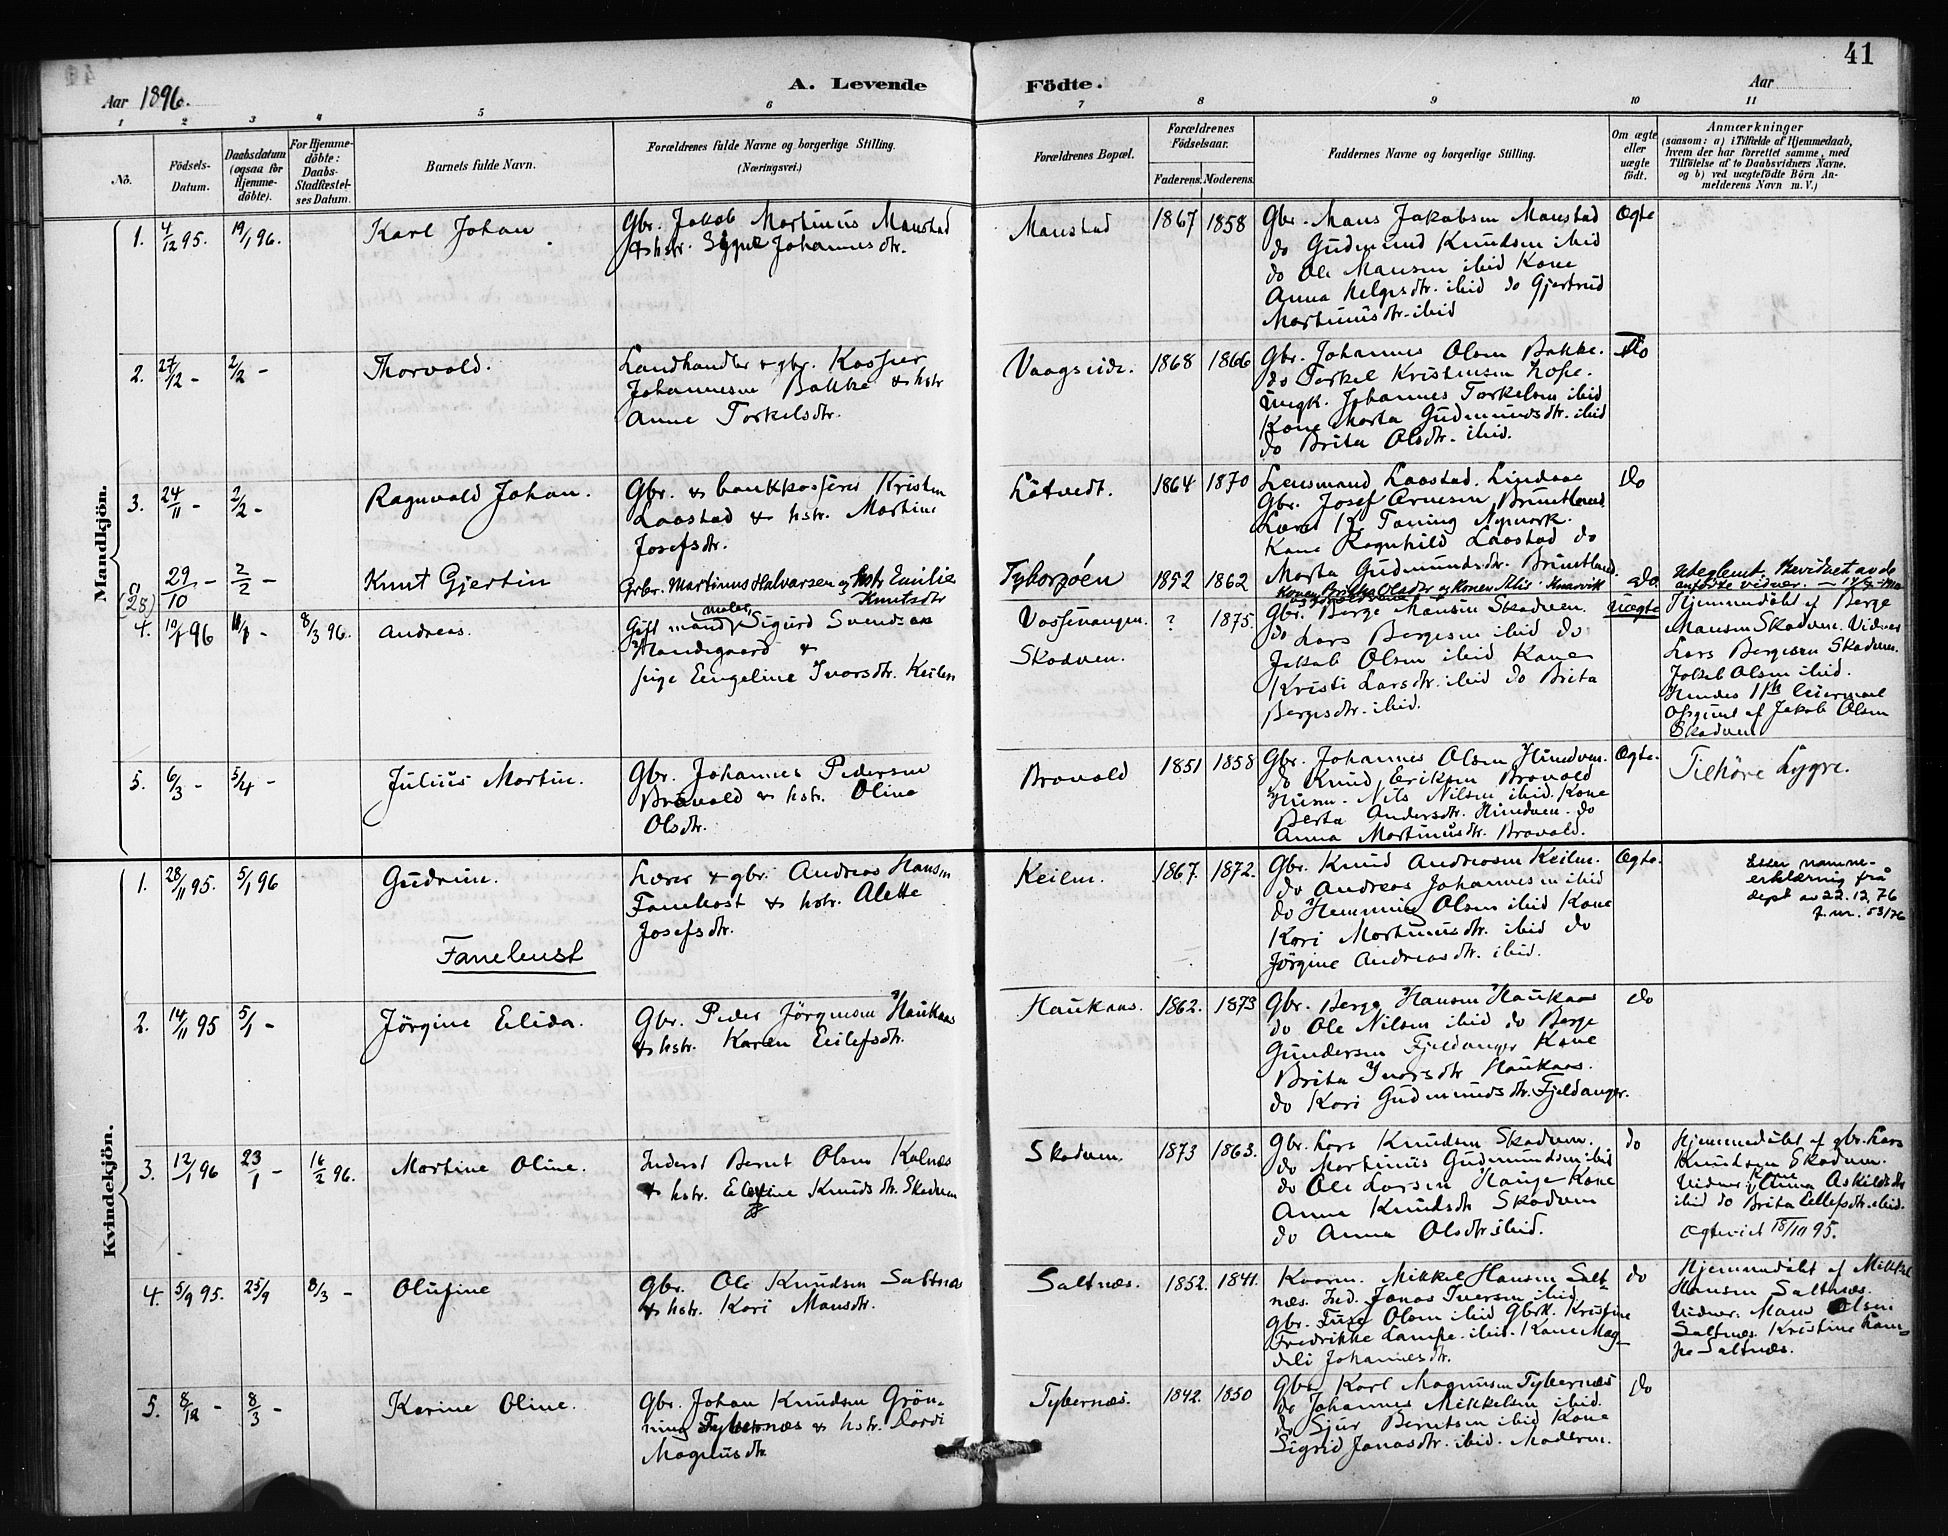 41
Aar 1896.
A. Levende Födte.
Aar
1 2 3 4 5 6 7 8 9 10 11
No.
Födsels-
Datum.
Daabsdatum
(ogsaa for
Hjemme-
döbte).
For Hjemme-
döbte:
Daabs-
Stadfæstel-
ses Datum.
Barnets fulde Navn.
Forældrenes fulde Navne og borgerlige Stilling.
(Næringsvei.)
Forældrenes Bopæl.
Forældrenes
Födselsaar.
Faderens. Moderens.
Faddernes Navne og borgerlige Stilling.
Om ægte
eller
uægte
födt.
Anmærkninger
(saasom: a) i Tilfælde af Hjemmedaab,
hvem der har forrettet samme, med
Tilföielse af to Daabsvidners Navne.
og b) ved uægtefödte Börn An-
melderens Navn m. V.)
Mandkjön.
1. 4/12 95. 19/1 96.
Karl Johan
Gbr. Jakob Martinus Manstad
& hstr. Johannesdtr.
Manstad
1867 1858
Gbr. Mans Jakobsen Manstad
do Gudmund Knudsen ibid
do Ole Mansen ibid Kone
Anna Helgesdtr. ibid do Gjertrud
Martinusdtr. ibid
Ægte
2. 27/12 - 2/2 -
Thorvald.
Landhandler & gbr. Kasper
Johannesen Bakke & hstr
Anne Torkelsdtr.
Vaagseide.
1868 1866
Gbr. Johannes Olsen Bakke.
do Torkel Kristensen Hope.
Ungk. Johannes Torkelsen ibid
Kone Marta Gudmundsdtr. ibid
do Brita Olsdtr. ibid.
do
3. 24/11 - 2/2 -
Ragnvald Johan.
Gbr. & bankkasserer Kristen
Laastad & hstr. Martine
Josefsdtr.
Lötvedt.
1864 1870
Lensmand Laastad. Lindaas
Gbr. Josef Arnesen Bruntland.
Lærer K. Taning
Kone Ragnhild Laastad do
Marta Gudmundsdtr. Bruntland.
do
(28) 29/10 - 2/2 -
Knut Gjertin
Grbr. Martinus Halvarsen og hstr Emilie
Knutsdtr
1852 1862
do.
Uteglemt.
4. 19/1 96 8/3 96.
Andreas.
Gift mand, maler Sigurd Svendsen
&
pige Engeline Ivarsdtr. Keilen
Vossevangen.
Skodven.
? 1875.
Gbr. Berge Mansen Skodven.
do Lars Bergesen ibid do
Jakob Olsen ibid Kone
Kristi Larsdtr. ibid do Brita
Bergesdtr. ibid.
Uægte
Hjemmedöbt af Berge
Mansen Skodven. Vidner
Lars Bergesen Skodven.
Jakob Olsen ibid.
Hendes 1ste leiermaal
Opgivet af Jakob Olsen
Skodven
5. 6/3 - 5/4 -
Julius Martin.
Gbr. Johannes Pedersen
Bravold & hstr. Oline
Olsdtr.
Bravold
1851 1858
Gbr. Johannes Olsen Hundven.
do Knud Eriksen Bravold
Husm. Nils Nilsen ibid. Kone
Berta Andersdtr. Hundven. do
Anna Martinusdtr. Bravold.
Ægte.
Tilhöre Lygre.
Kvindekjön.
1. 28/11 95. 5/1 96
Gudrun.
Fanebust
Lærer & gbr. Andreas Hansen
Fanebost & hstr. Alette
Josefsdtr.
Keilen.
1867. 1872.
Gbr. Knud Andreasen Keilen.
do Andreas Johannesen ibid
do Hemming Olsen ibid Kone
Kari Martinusdtr. ibid do
Jörgine Andreasdtr. ibid.
Ægte.
Etter namne-
erklæring frå
dept av 22.12.76
J.nr. 53/76
2. 14/11 95 5/1 -
Jörgine Elida.
Gbr. Peder Jörgensen Haukaas
& hstr. Karen Eilefsdtr.
Haukaas.
1862. 1873
Gbr. Berge Hansen Haukaas
do Ole Nilsen ibid do Berge
Gundersen Fjeldanger Kone
Brita Ivarsdtr Haukaas.
do Kari Gudmundsdtr. Fjeldanger.
do
3. 12/1 96 23/1 - 16/2 96.
Martine Oline.
Inderst Bernt Olsen Kalnæs
& hstr. Knudsdtr. Skodven
Skodven.
1873 1863.
Gbr. Lars Knudsen Skodven.
do Martinus Gudmundsen ibid
do Ole Larsen Hauge Kone
Anna Knudsdtr Skodven
do Anna Olsdtr ibid.
do
Hjemmedöbt af gbr. Lars
Knudsen Skodven.
Vidner: Kone Anna Askildsdtr
ibid do Brita Ellefsdtr. ibid.
Ægteviet 18/10 95.
4. 5/9 95. 25/9 8/3 -
Olufine
Gbr. Ole Knudsen Saltnæs
& hstr. Kari Mansdtr.
Saltnæs.
1852. 1841.
Kaarm. Mikkel Hansen Salt-
næs. Ind. Jonas Iversen ibid
Gbr. Olsen ibid Gbrk. Kristine
Fredrikke Lampe. ibid. Kone Mag-
deli Johannesdtr.
do
Hjemmedöbt af Mikkel
Hansen Saltnæs.
Vidner: Mans Olsen
Saltnæs. Kristine Lam-
pe Saltnæs.
5. 8/12 - 8/3 -
Karine Oline.
Gbr. Johan Knudsen Grön-
ning Tybernæs & hstr. Dordi
Magnusdtr
Tybernæs.
1842. 1850
Gbr. Karl Magnusen Tybernæs
do Johannes Mikkelsen ibid.
do Sjur Berntsen ibid Kone
Sigrid Jonasdtr. ibid. Moderen.
do